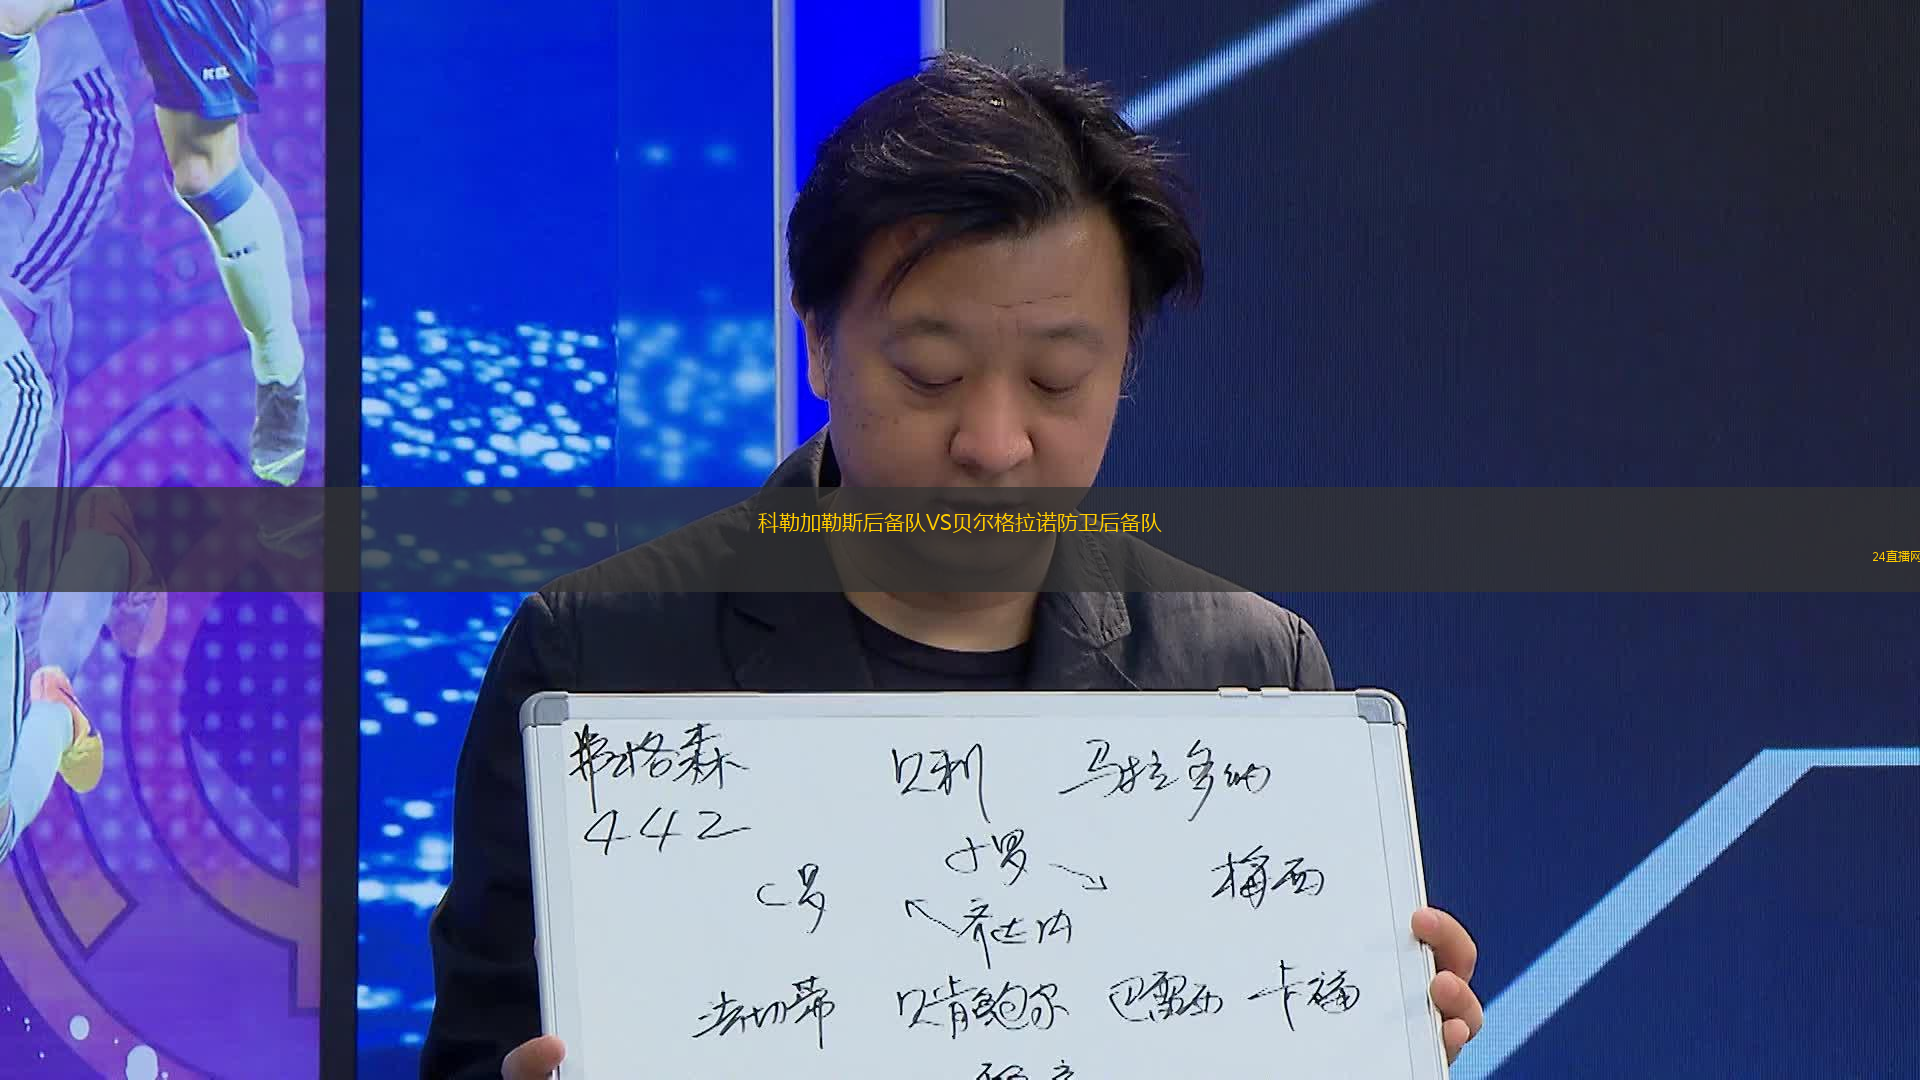 科勒加勒斯后备队VS贝尔格拉诺防卫后备队
24直播网
弗格森 贝利 马拉多纳
442
小罗
C罗 梅西
齐达内
法切蒂 贝肯鲍尔 巴雷西 卡福